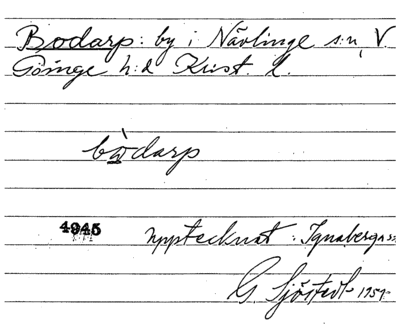 Bodarp: by i Nävlinge s:n, V.
Göinge h:d Krist. l.
bòdarp
4945 upptecknat i Ignaberga s:n
G. Sjöstedt 1954